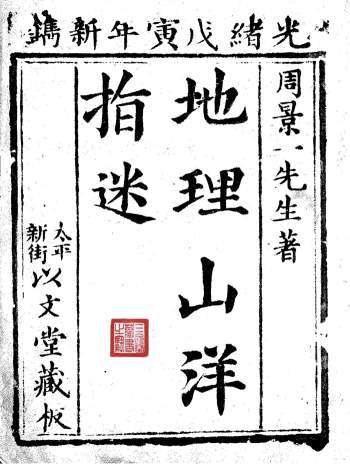 光緒戊寅年新鐫
周景一先生著
地理山洋
指迷
太平
新街
以文堂藏板